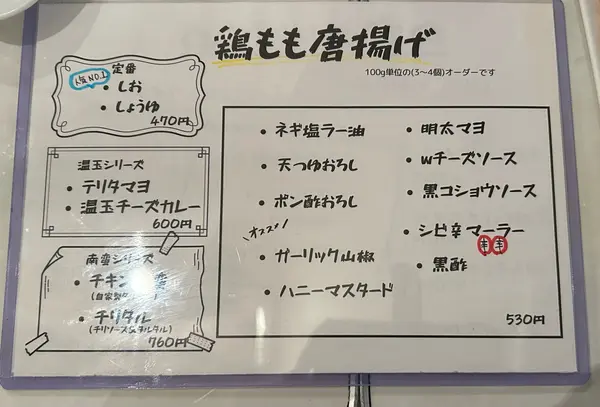 鶏もも唐揚げ
100g単位の(3~4個)オーダーです
定番
人気NO.1
・しお
・しょうゆ
470円
温玉シリーズ
・テリタマヨ
・温玉チーズカレー
600円
南蛮シリーズ
・チキン
(自家製
・チリタル
(チリソース&タルタル)
760円
・ネギ塩ラー油
・天つゆおろし
・ポン酢おろし
オススメ!
・ガーリック山椒
・ハニーマスタード
・明太マヨ
・wチーズソース
・黒コショウソース
・シビ辛マーラー
・黒酢
530円